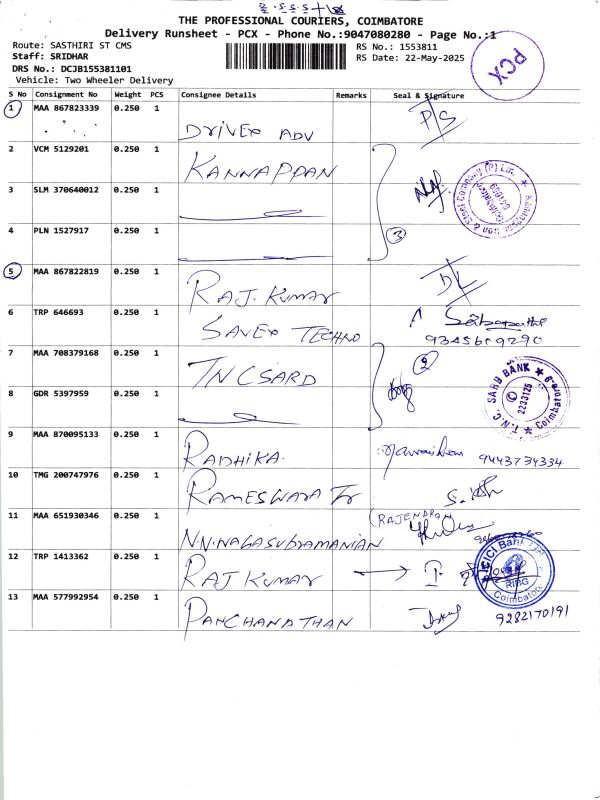 THE PROFESSIONAL COURIERS, COIMBATORE
Delivery Runsheet - PCX - Phone No.:9047080280 - Page No.:1
Route: SASTHIRI ST CMS
RS No.: 1553811
Staff: SRIDHAR
RS Date: 22-May-2025
DRS No.: DCJB155381101
Vehicle: Two Wheeler Delivery
PCX
S No Consignment No Weight PCS Consignee Details Remarks Seal & Signature
1 MAA 867823339 0.250 1 DRIVER ADV D/S
2 VCM 5129201 0.250 1 KANNAPPAN
3 SLM 370640012 0.250 1
4 PLN 1527917 0.250 1 3
5 MAA 867822819 0.250 1 RAJ. KUMAR D/L
6 TRP 646693 0.250 1 SAVER TECHNO Sabapathi
9345609290
7 MAA 708379168 0.250 1 TNCSARD 2
T.N.C. SARD BANK ★ Coimbatore-9 ★
2233125
8 GDR 5397959 0.250 1
9 MAA 870095133 0.250 1 RADHIKA. 9443734334
10 TMG 200747976 0.250 1 RAMESWARA Tr
11 MAA 651930346 0.250 1 N.N.NAGASUBRAMANIAN (RAJENDRAN)
12 TRP 1413362 0.250 1 RAJ KUMAR
ICICI Bank
RIBG
Coimbatore
13 MAA 577992954 0.250 1 PANCHANATHAN 9282170191